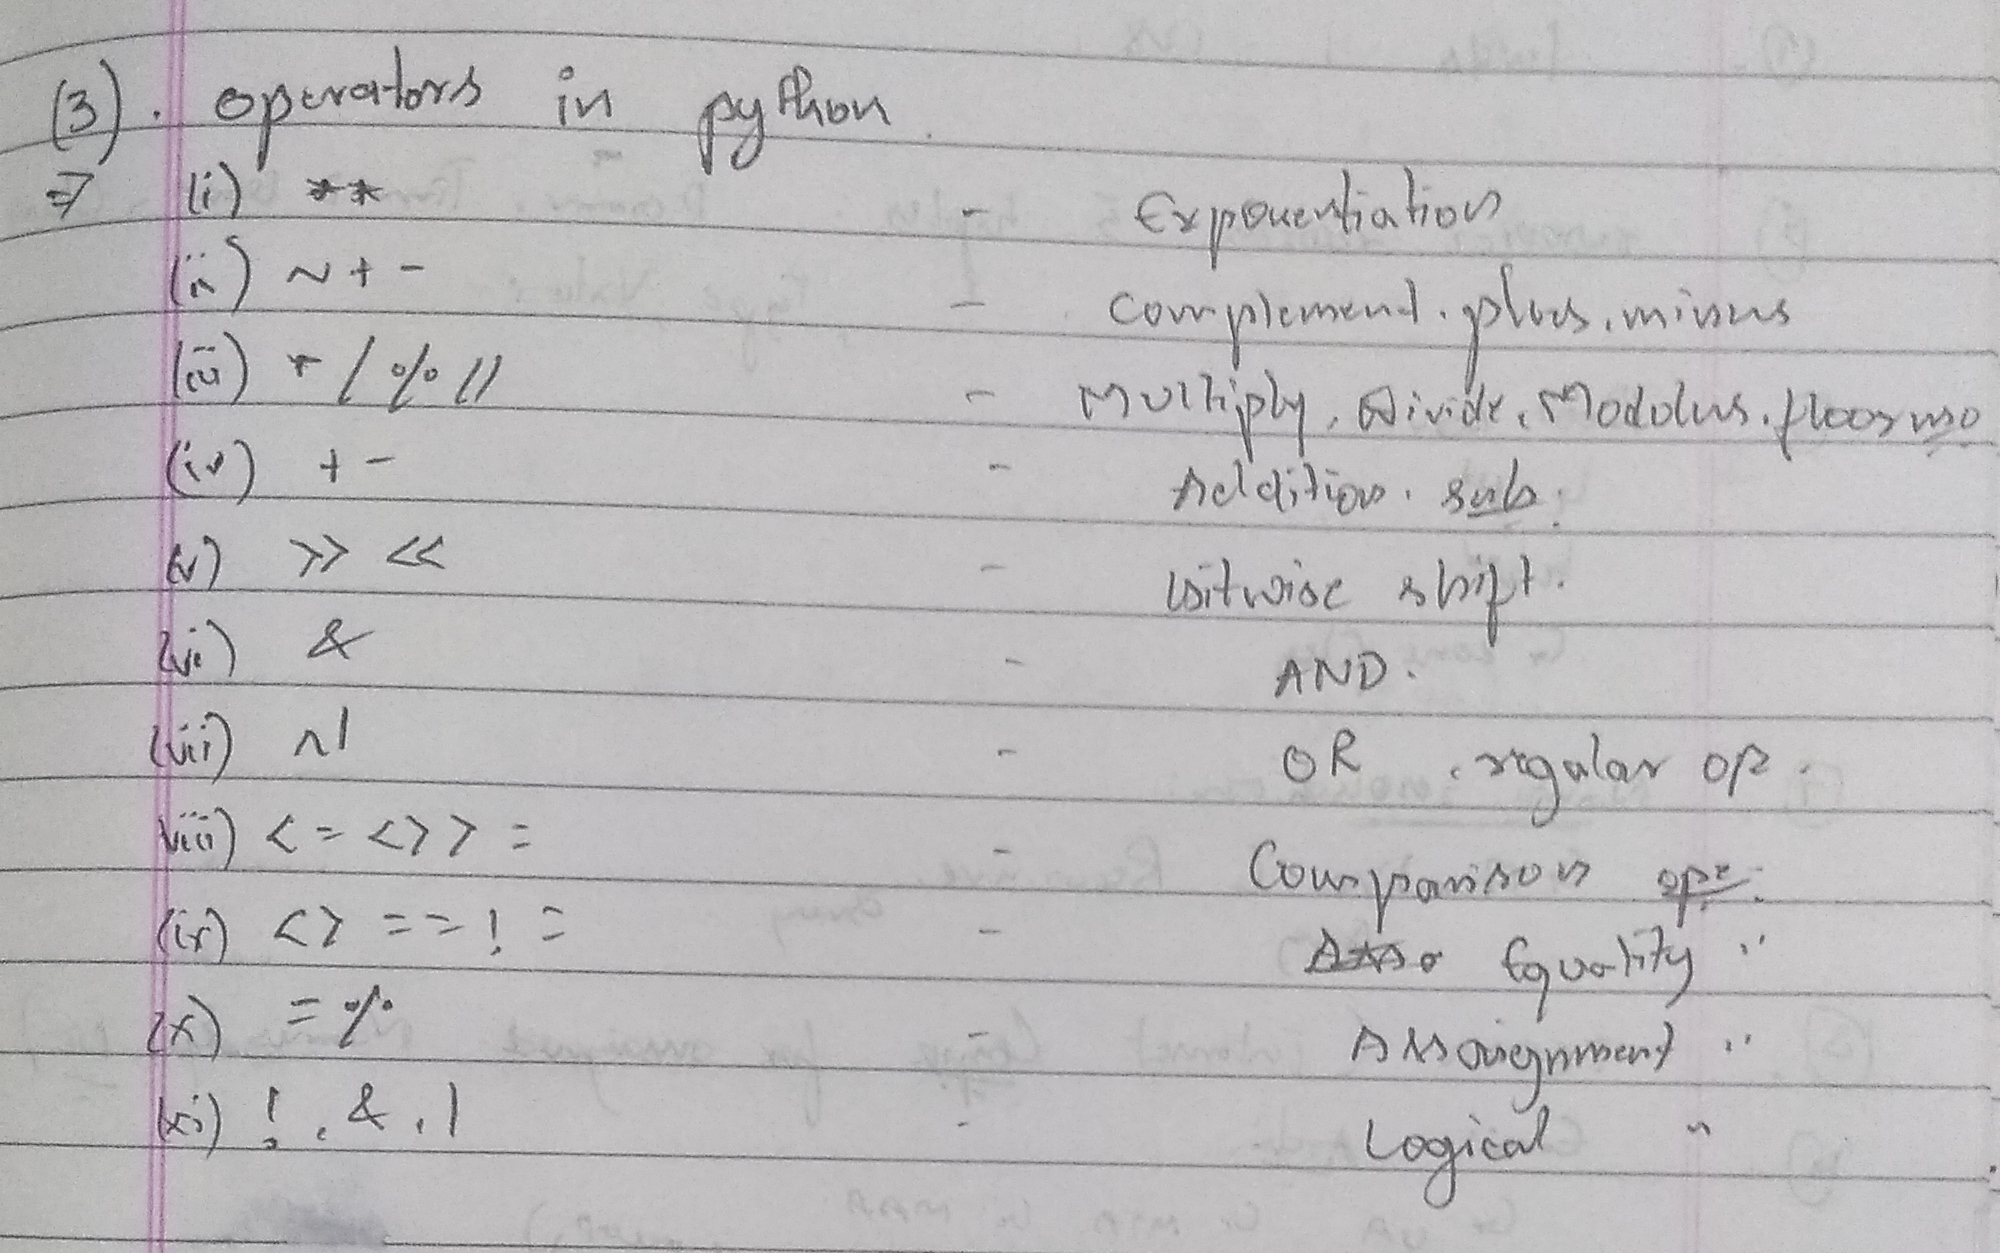 (3). operators in python.
⇒ (i) ** - Exponentiation
(ii) ~ + - - complement, plus, minus
(iii) * / % // - Multiply, Divide, Modolus, floor mo
(iv) + - - Addition, sub.
(v) >> << - bitwise shift.
(vi) & - AND.
(vii) ^ | - OR, regular op.
(viii) < = < > > = - Comparison opr.
(ix) < > = = ! = - Equality "
(x) = % - Assignment "
(xi) !, &, | - Logical "